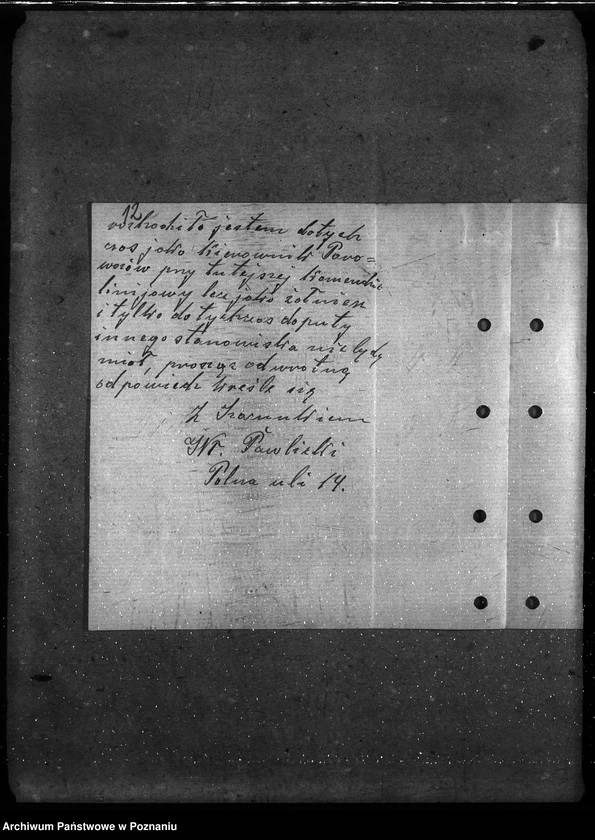 12
obchodziło jestem dotych
czas jako kierownik Paro=
wozów przy tutejszej komendzie
linijowy lecz jako żołnierz
i tylko do tychczas dopuky
innego stanowiska nie będę
miał, prosząc odwrotną
odpowiedz kreśle się
Z Szacunkiem
Pawlicki
Polna uli 14.
Archiwum Państwowe w Poznaniu